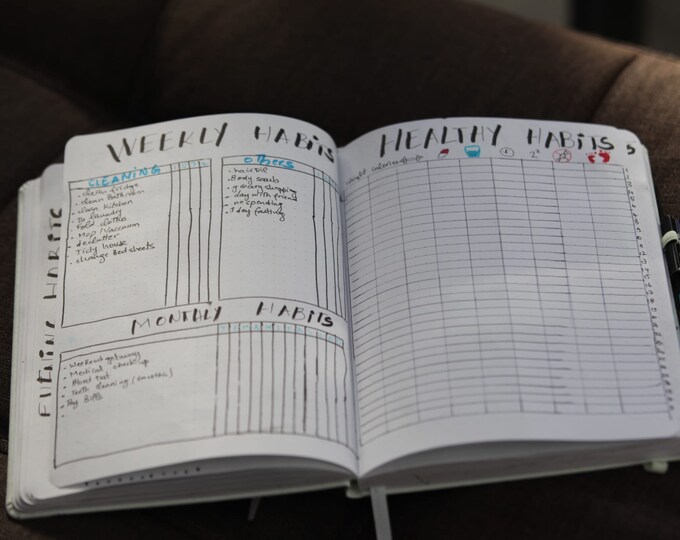 WEEKLY HABITS
CLEANING
- clean fridge
- clean Bathroom
- clean Kitchen
- Do laundry
- Fold clothes
- Mop / Vaccuum
- declutter
- Tidy house
- change Bedsheets
Others
- hair
- Body scrub
- grocery shopping
- day with friend
- no spending
- 1 day fasting
MONTHLY HABITS
- Weekend getaway
- Medical check-up
- Blood Test
- Teeth cleaning
- Pay Bills
HEALTHY HABITS
EVENING HABITS